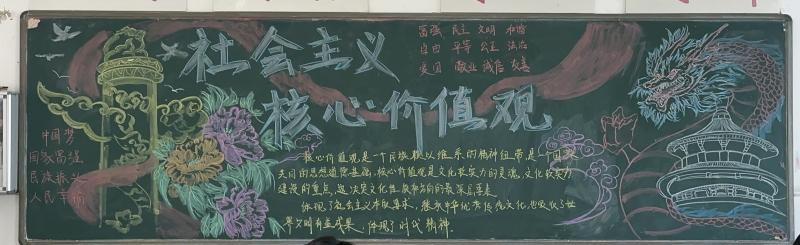 社会主义
核心价值观
富强 民主 文明 和谐
自由 平等 公正 法治
爱国 敬业 诚信 友善
中国梦
国家富强
民族振兴
人民幸福
核心价值观是一个民族赖以维系的精神纽带,是一个国家
共同的思想道德基础,核心价值观是文化软实力的灵魂,文化软实力
建设的重点,是决定文化性质和方向的最深层要素
体现了社会主义本质要求,继承中华优秀传统文化,也吸收了世
界文明有益成果,体现了时代精神.